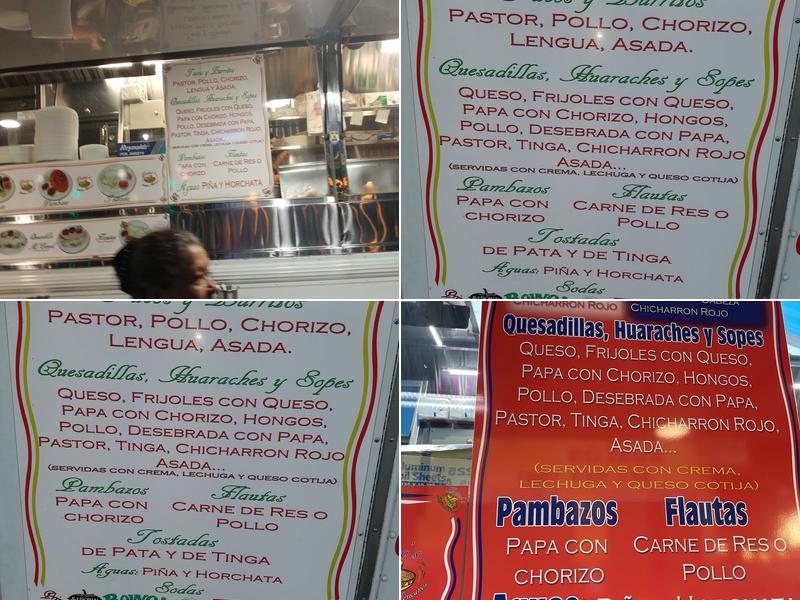 Tacos y Burritos
PASTOR, POLLO, CHORIZO,
LENGUA Y ASADA.
Quesadillas, Huaraches y Sopes
QUESO, FRIJOLES CON QUESO,
PAPA CON CHORIZO, HONGOS,
POLLO, DESEBRADA CON PAPA,
PASTOR, TINGA, CHICHARRON ROJO,
ASADA...
(SERVIDAS CON CREMA, LECHUGA Y QUESO COTIJA)
Pambazos Flautas
PAPA CON CARNE DE RES O
CHORIZO POLLO
Aguas PIÑA Y HORCHATA
Reynolds
Tacos y Burritos
PASTOR, POLLO, CHORIZO,
LENGUA, ASADA.
Quesadillas, Huaraches y Sopes
QUESO, FRIJOLES CON QUESO,
PAPA CON CHORIZO, HONGOS,
POLLO, DESEBRADA CON PAPA,
PASTOR, TINGA, CHICHARRON ROJO
ASADA...
(SERVIDAS CON CREMA, LECHUGA Y QUESO COTIJA)
Pambazos Flautas
PAPA CON CARNE DE RES O
CHORIZO POLLO
Tostadas
DE PATA Y DE TINGA
Aguas: PIÑA Y HORCHATA
Sodas
Tacos y Burritos
PASTOR, POLLO, CHORIZO,
LENGUA, ASADA.
Quesadillas, Huaraches y Sopes
QUESO, FRIJOLES CON QUESO,
PAPA CON CHORIZO, HONGOS,
POLLO, DESEBRADA CON PAPA,
PASTOR, TINGA, CHICHARRON ROJO
ASADA...
(SERVIDAS CON CREMA, LECHUGA Y QUESO COTIJA)
Pambazos Flautas
PAPA CON CARNE DE RES O
CHORIZO POLLO
Tostadas
DE PATA Y DE TINGA
Aguas: PIÑA Y HORCHATA
Sodas
CHICHARRON ROJO CABEZA
CHICHARRON ROJO
Quesadillas, Huaraches y Sopes
QUESO, FRIJOLES CON QUESO,
PAPA CON CHORIZO, HONGOS,
POLLO, DESEBRADA CON PAPA,
PASTOR, TINGA, CHICHARRON ROJO,
ASADA...
(SERVIDAS CON CREMA,
LECHUGA Y QUESO COTIJA)
Pambazos Flautas
PAPA CON CARNE DE RES O
CHORIZO POLLO